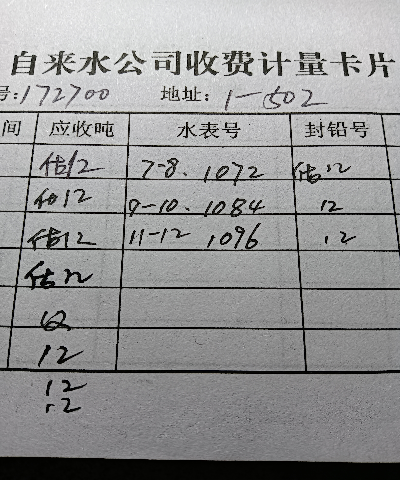 自来水公司收费计量卡片
号:172700 地址: 1-502
间 应收吨 水表号 封铅号
估12 7-8. 1072 估12
估12 9-10. 1084 12
估12 11-12 1096 12
估12
12
12
12
12